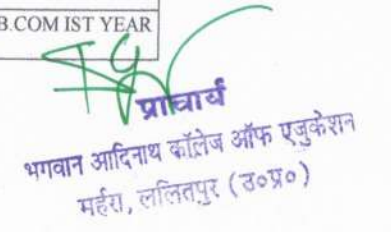 B.COM IST YEAR
प्राचार्य
भगवान आदिनाथ कॉलेज ऑफ एजुकेशन
महर्रा, ललितपुर (उ०प्र०)